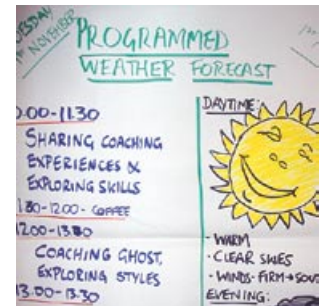 NOVEMBER
PROGRAMMED
WEATHER FORECAST
.00-11.30
SHARING COACHING
EXPERIENCES &
EXPLORING SKILLS
1.30-12.00- COFFEE
12.00-13.30
COACHING GHOST,
EXPLORING STYLES
13.00-13.30
DAYTIME:
- WARM
- CLEAR SKIES
- WINDS- FIRM →
EVENING: